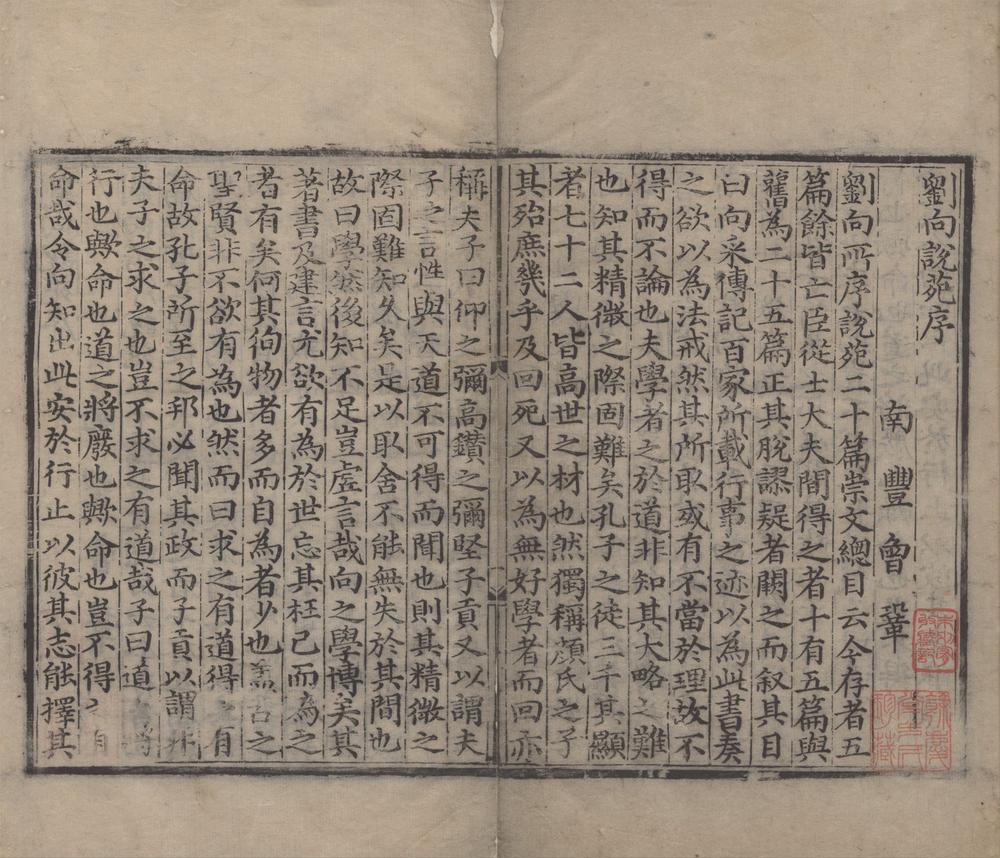 劉向說苑序
南豐曾鞏
劉向所序說苑二十篇崇文緫目云今存者五
篇餘皆亡臣從士大夫間得之者十有五篇與
舊為二十五篇正其脫謬疑者闕之而叙其目
曰向采傳記百家所載行事之迹以為此書奏
之欲以為法戒然其所取或有不當於理故不
得而不論也夫學者之於道非知其大略之難
也知其精微之際固難矣孔子之徒三千其顯
者七十二人皆高世之材也然獨稱顏氏之子
其殆庶幾乎及回死又以為無好學者而回亦
稱夫子曰仰之彌高鑽之彌堅子貢又以謂夫
子之言性與天道不可得而聞也則其精微之
際固難知久矣是以取舍不能無失於其間也
故曰學然後知不足豈虛言哉向之學博矣其
著書及建言尤欲有為於世忘其枉己而為之
者有矣何其徇物者多而自為者少也盖古之
聖賢非不欲有為也然而曰求之有道得之有
命故孔子所至之邦必聞其政而子貢以謂非
夫子之求之也豈不求之有道哉子曰道 將
行也歟命也道之將廢也歟命也豈不得之有
命哉令向知出此安於行止以彼其志能擇其